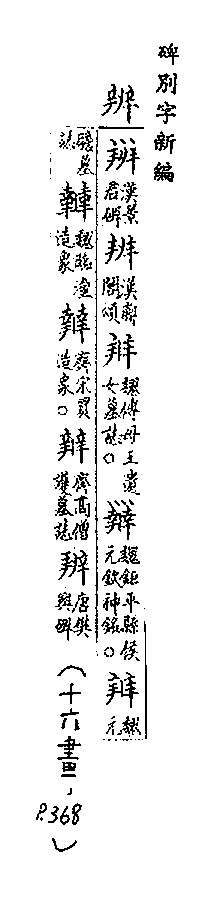 碑別字新編
辨
辨漢景君碑辨漢郙閣頌辨魏傅母王遺女墓誌。辨魏鉅平縣侯元欽神銘。辨魏元
墓誌辨魏臨潼造象辨齊宋買造象。辨齊高僧護墓誌辨唐樊興碑(十六畫,P.368)